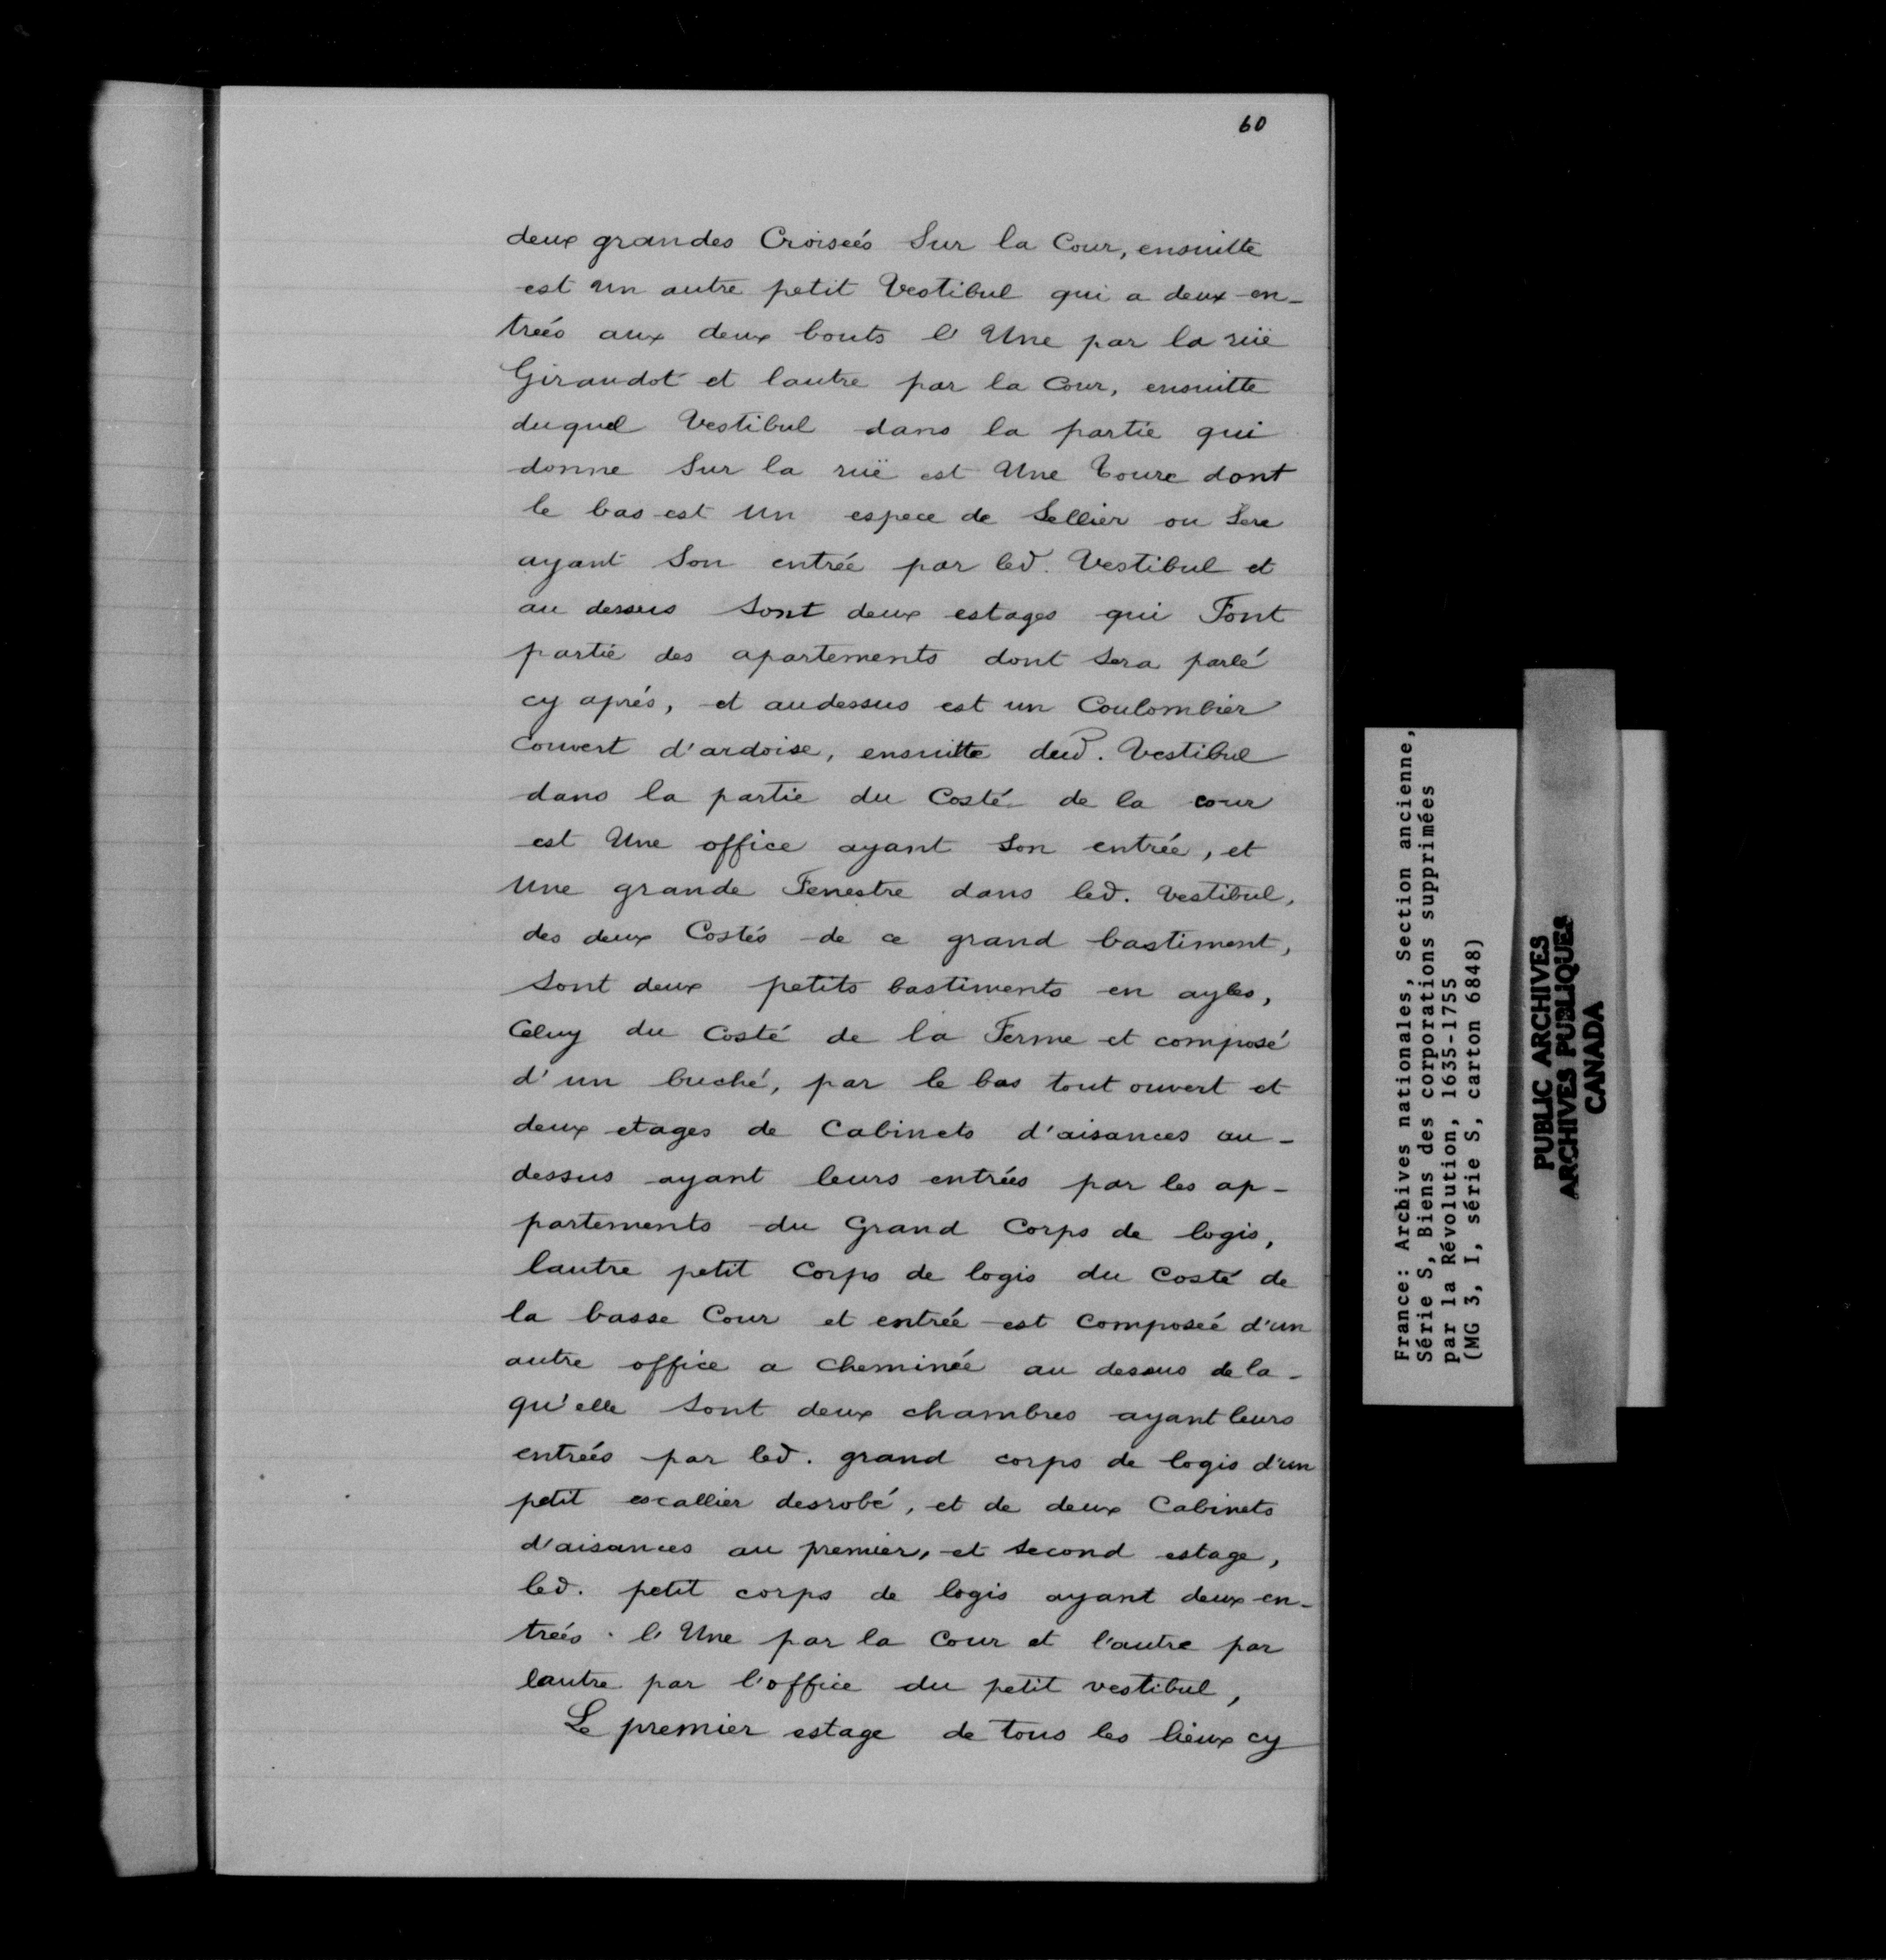 60
deux grandes Croiseés Sur la Cour, ensuitte
est un autre petit Vestibul qui a deux en-
treés aux deux bouts l'Une par la rüe
Giraudot et lautre par la Cour, ensuitte
duquel Vestibul dans la partie qui
donne Sur la ruë est Une Toure dont
le bas est Un espece de Sellier ou Sere
ayant Son entrée par led. Vestibul et
au dessus Sont deux estages qui Font
partie des apartements dont Sera parlé
cy aprés, et audessus est un Coulombier
Couvert d'ardoise, ensuitte dud. Vestibul
dans la partie du Costé de la cour
est Une office ayant Son entrée, et
Une grande Fenestre dans led. Vestibul,
des deux Costés de ce grand bastiment,
Sont deux petits bastiments en ayles,
Celuy du Costé de la Ferme et composé
d'un buché, par le bas tout ouvert et
deux etages de Cabinets d'aisances au-
dessus ayant leurs entrées par les ap-
partements du Grand Corps de logis,
lautre petit Corps de logis du Costé de
la basse Cour et entrée est Composeé d'un
autre office a Cheminée au dessus de la-
qu'elle Sont deux chambres ayant leurs
entreés par led. grand corps de logis d'un
petit escallier desrobé, et de deux Cabinets
d'aisances au premier, et Second estage,
led. petit corps de logis ayant deux en-
treés. l'Une par la Cour et l'autre par
lautre par l'office du petit vestibul,
Le premier estage de tous les lieux cy
France: Archives nationales, Section ancienne,
Série S, Biens des corporations supprimées
par la Révolution, 1635-1755
(MG 3, I, série S, carton 6848)
PUBLIC ARCHIVES
ARCHIVES PUBLIQUES
CANADA